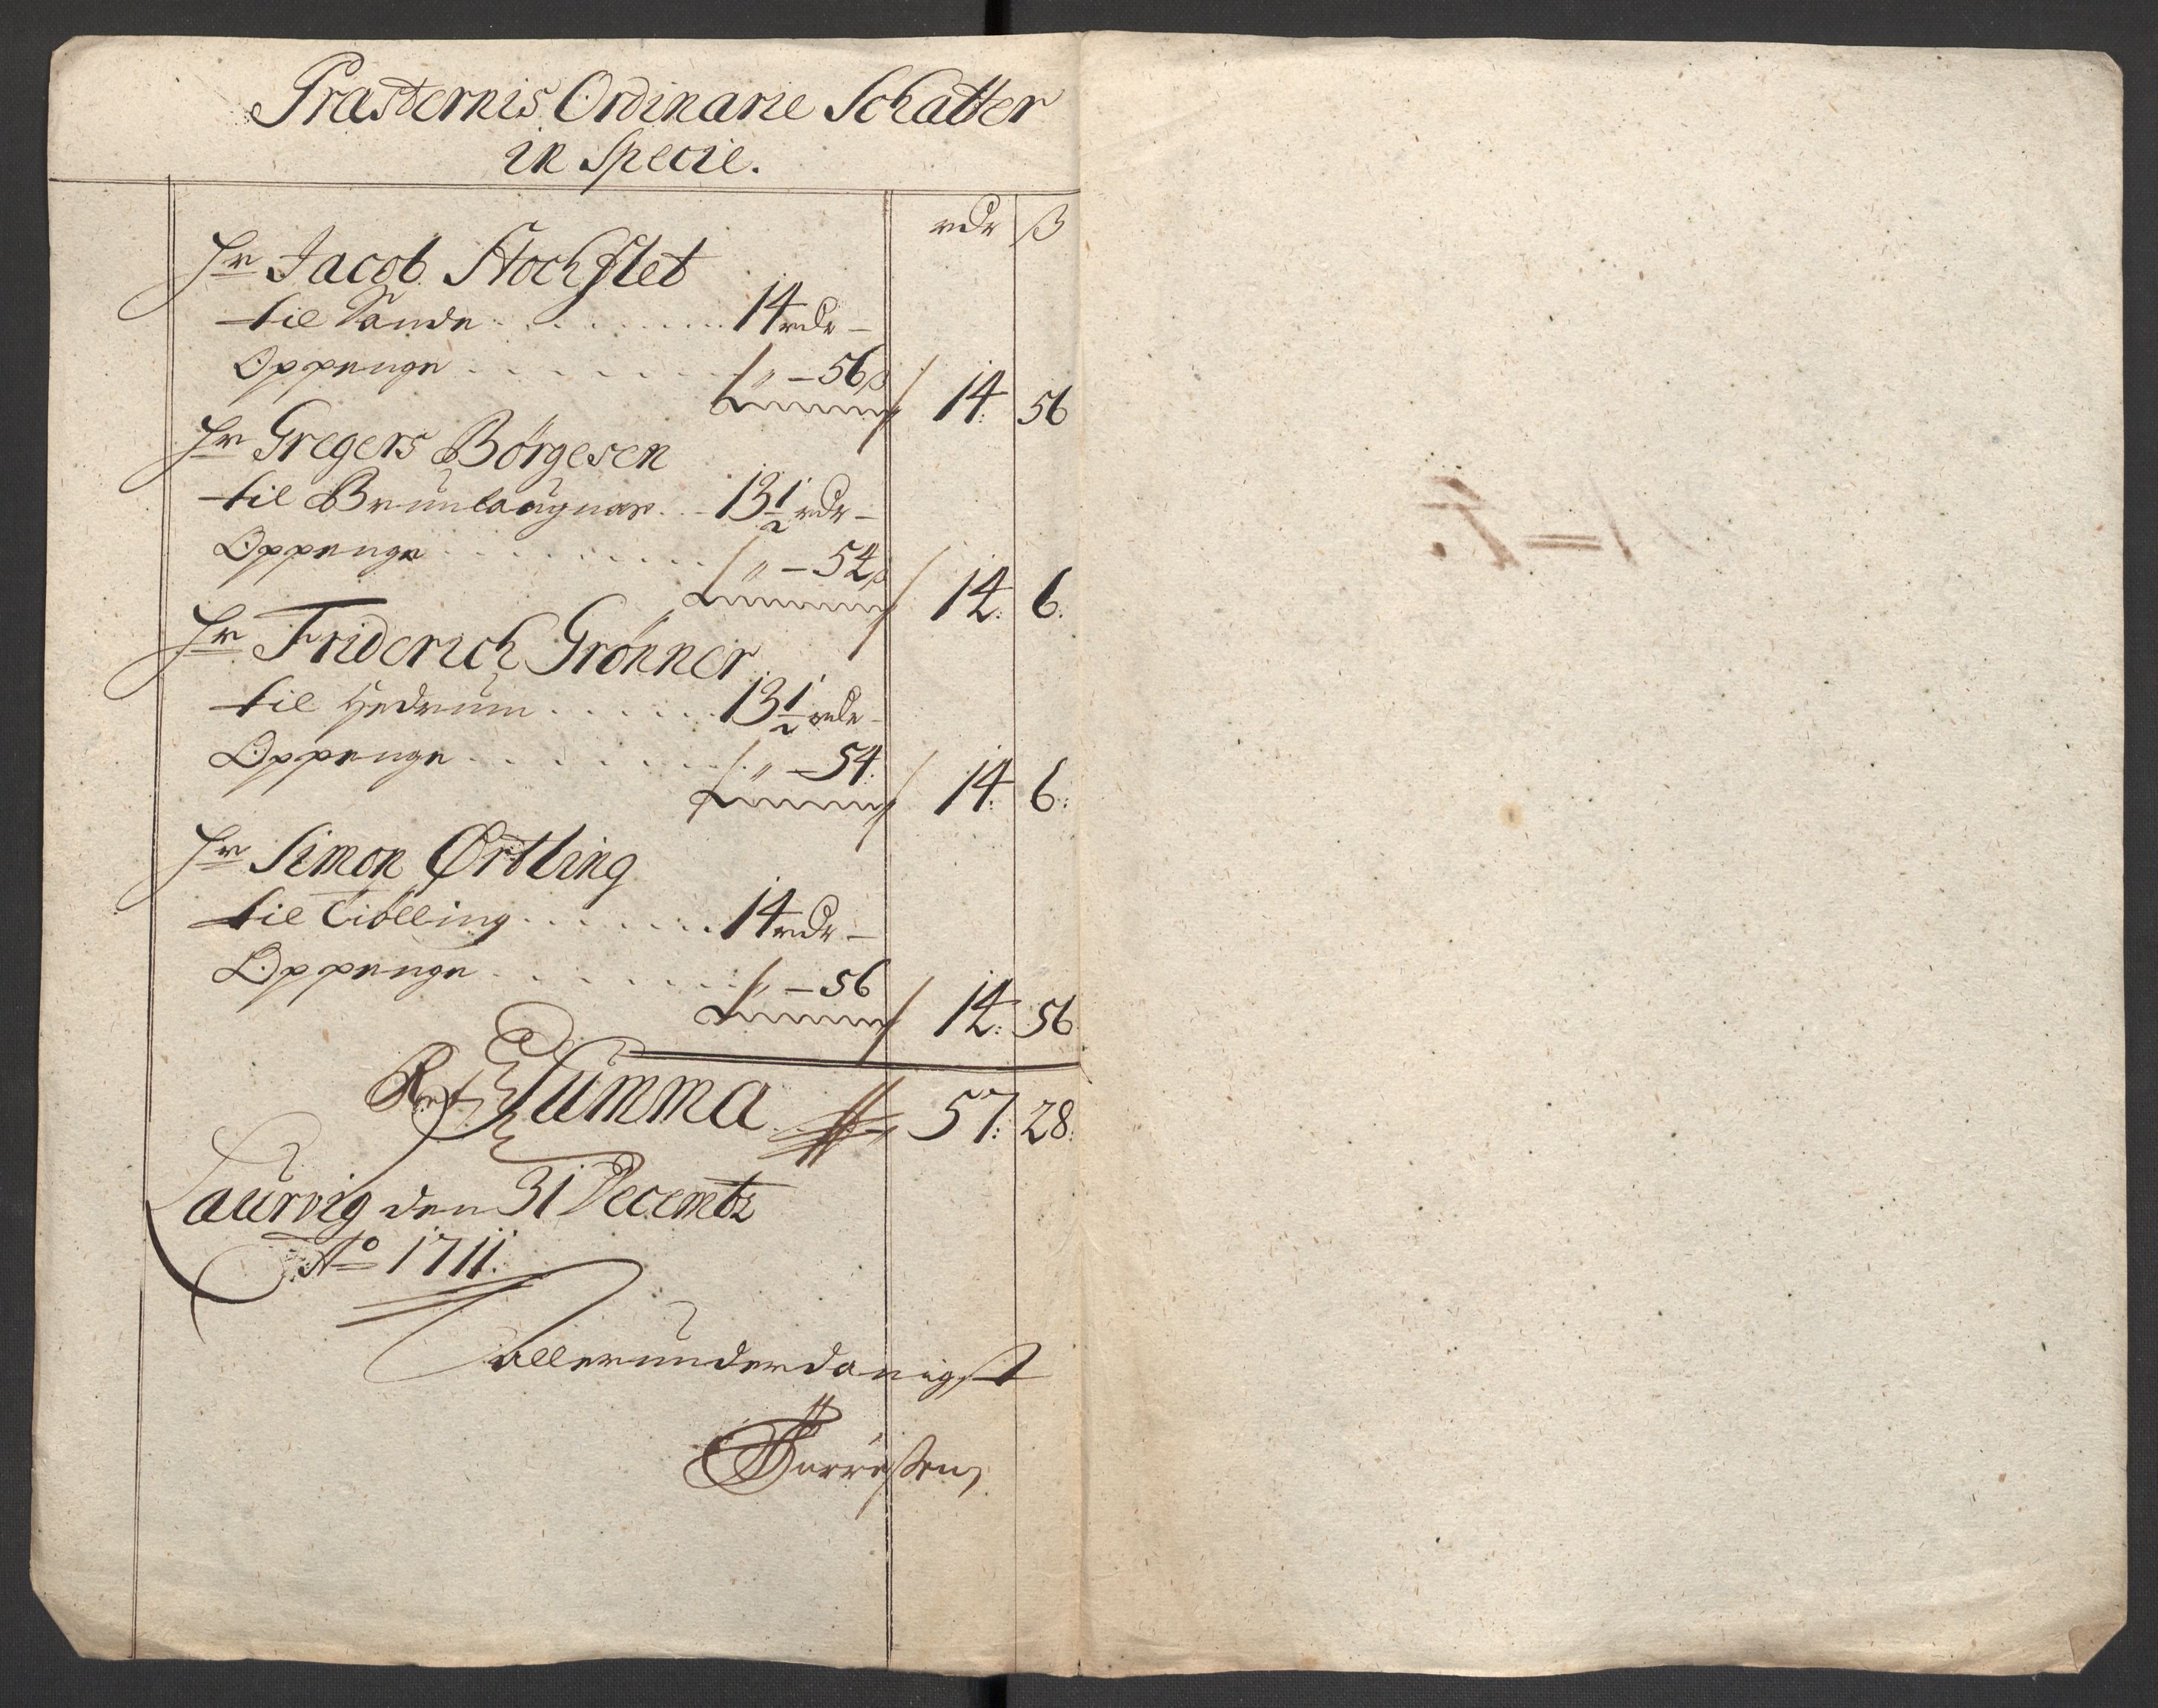 Præsternis Ordinarie Schatter
in Specie.
rdr ß
Hr Jacob Stochflet
til Sande . . . . . . . . 14 rdr –
Oppenge . . . . . . . „ – 56 ß 14: 56
Hr Gregers Börgesen
til Brunlaugnæs . . 13 1/2 rdr –
Oppenge . . . . . . . „ – 54 ß 14: 6:
Hr Friderich Grönner
til Hedrum . . . . . . 13 1/2 rdr –
Oppenge . . . . . . . „ – 54: 14: 6:
Hr Simon Ørtling
til Tiölling . . . . . . 14 rdr –
Oppenge . . . . . . . „ – 56 14: 56
Summa 57: 28:
Laurvig den 31 Decembr
Ao 1711.
allerunderdanigst